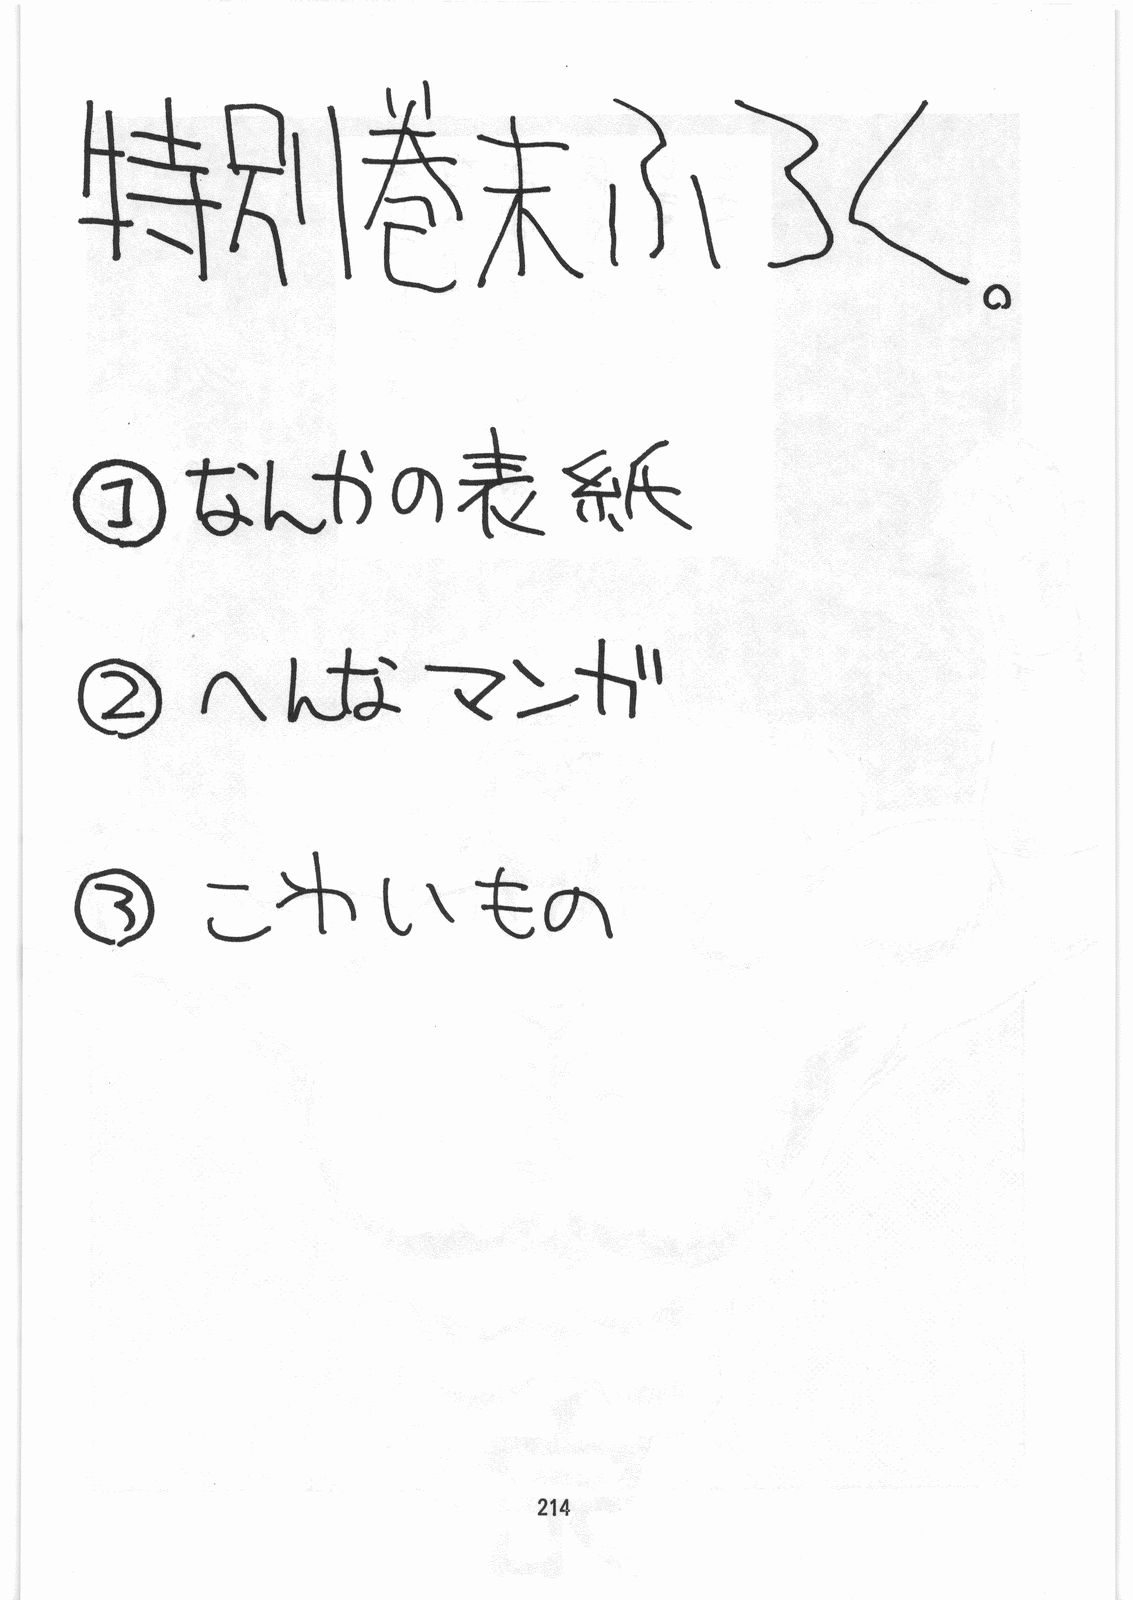 特別巻末ふろく。
① なんかの表紙
② へんなマンガ
③ こわいもの
214